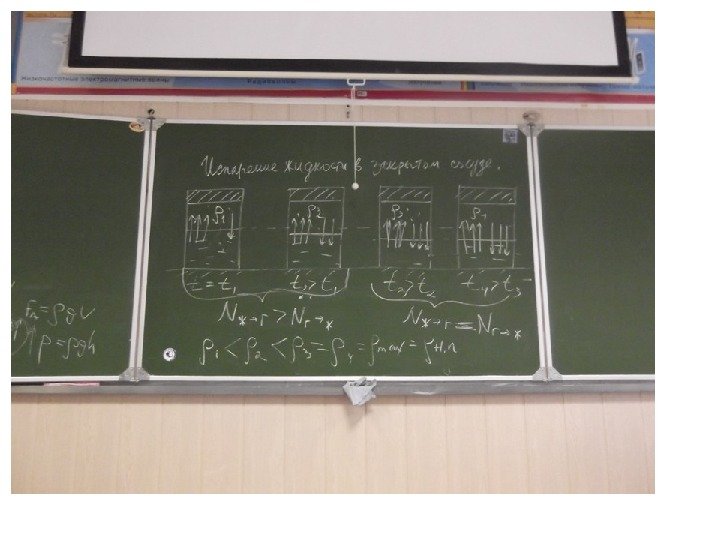 Низкочастотные электромагнитные волны
Радиоволны
Испарение жидкости в закрытом сосуде.
ρ₁ ρ₂ ρ₃ ρ₄
t = t₁ t₂ > t₁ t₃ > t₂ t₄ > t₃
Nж→г > Nг→ж Nж→г = Nг→ж
ρ₁ < ρ₂ < ρ₃ = ρ₄ = ρmax = ρн.п
= ρgV
p = ρgh